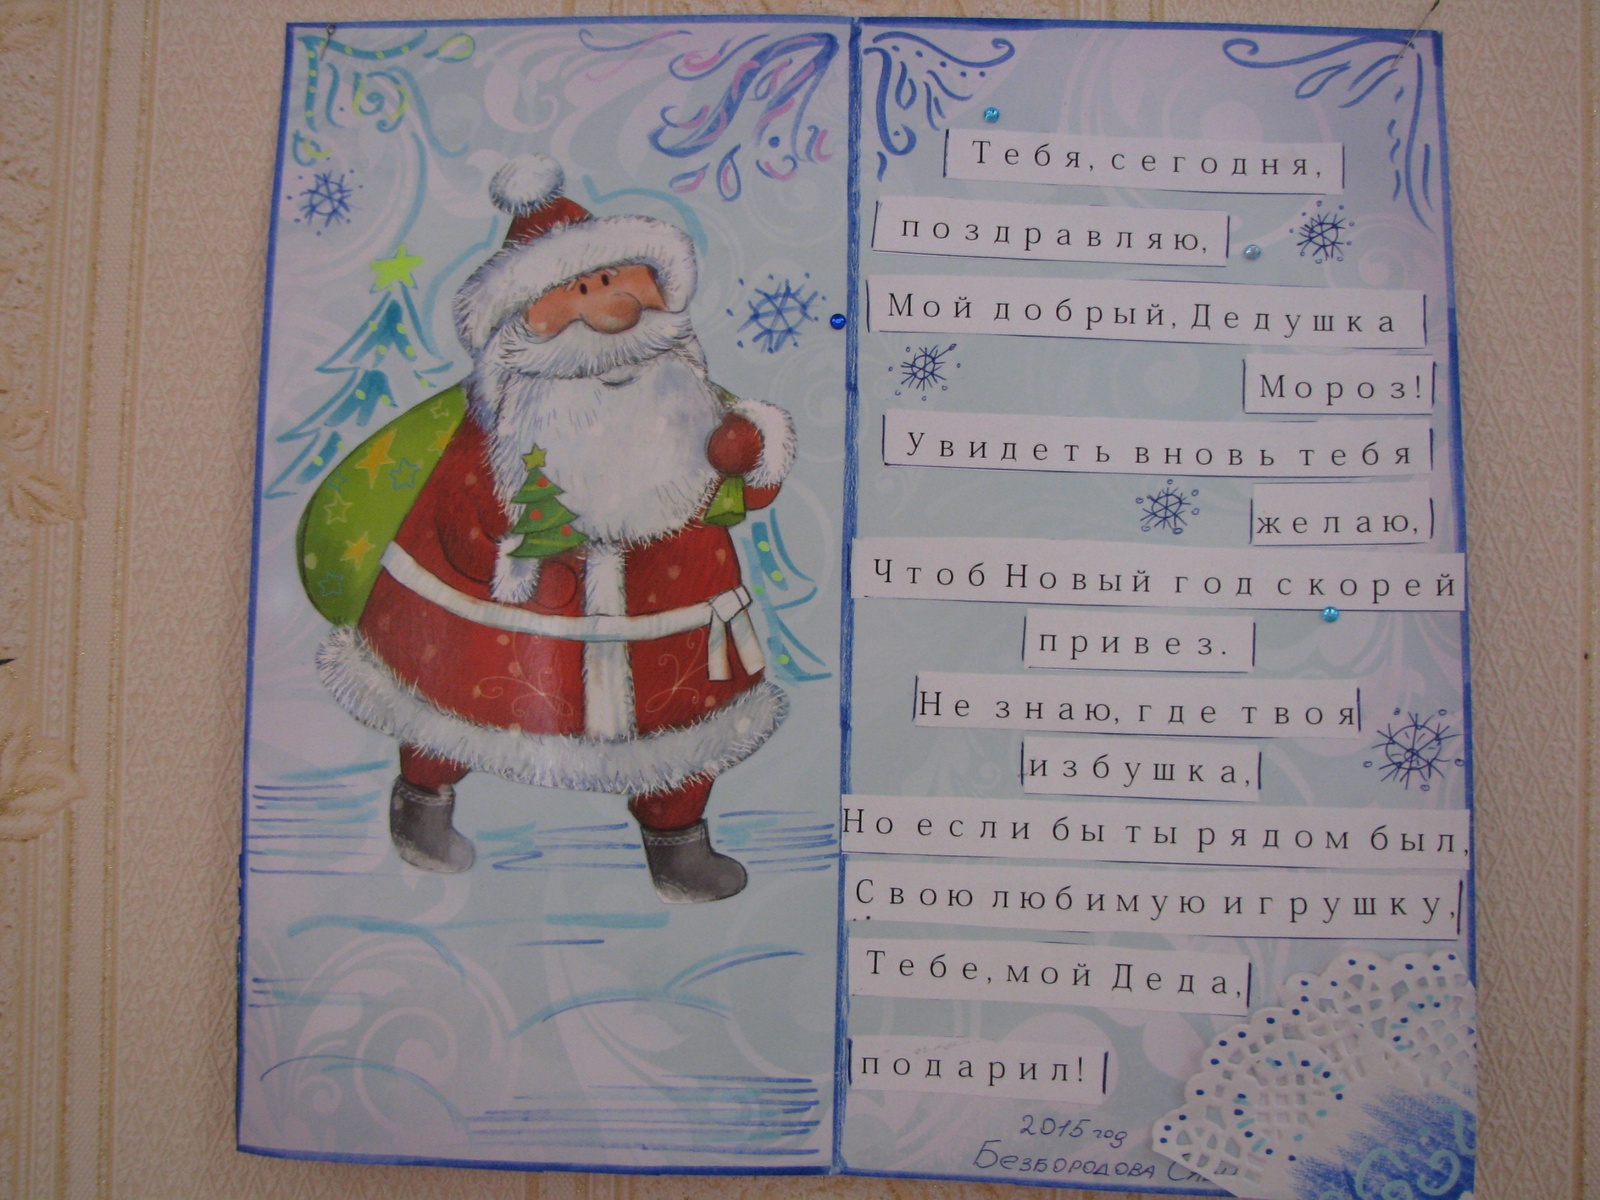 Тебя, сегодня,
поздравляю,
Мой добрый, Дедушка
Мороз!
Увидеть вновь тебя
желаю,
Чтоб Новый год скорей
привез.
Не знаю, где твоя
избушка,
Но если бы ты рядом был,
Свою любимую игрушку,
Тебе, мой Деда,
подарил!
2015 год
Безбородова